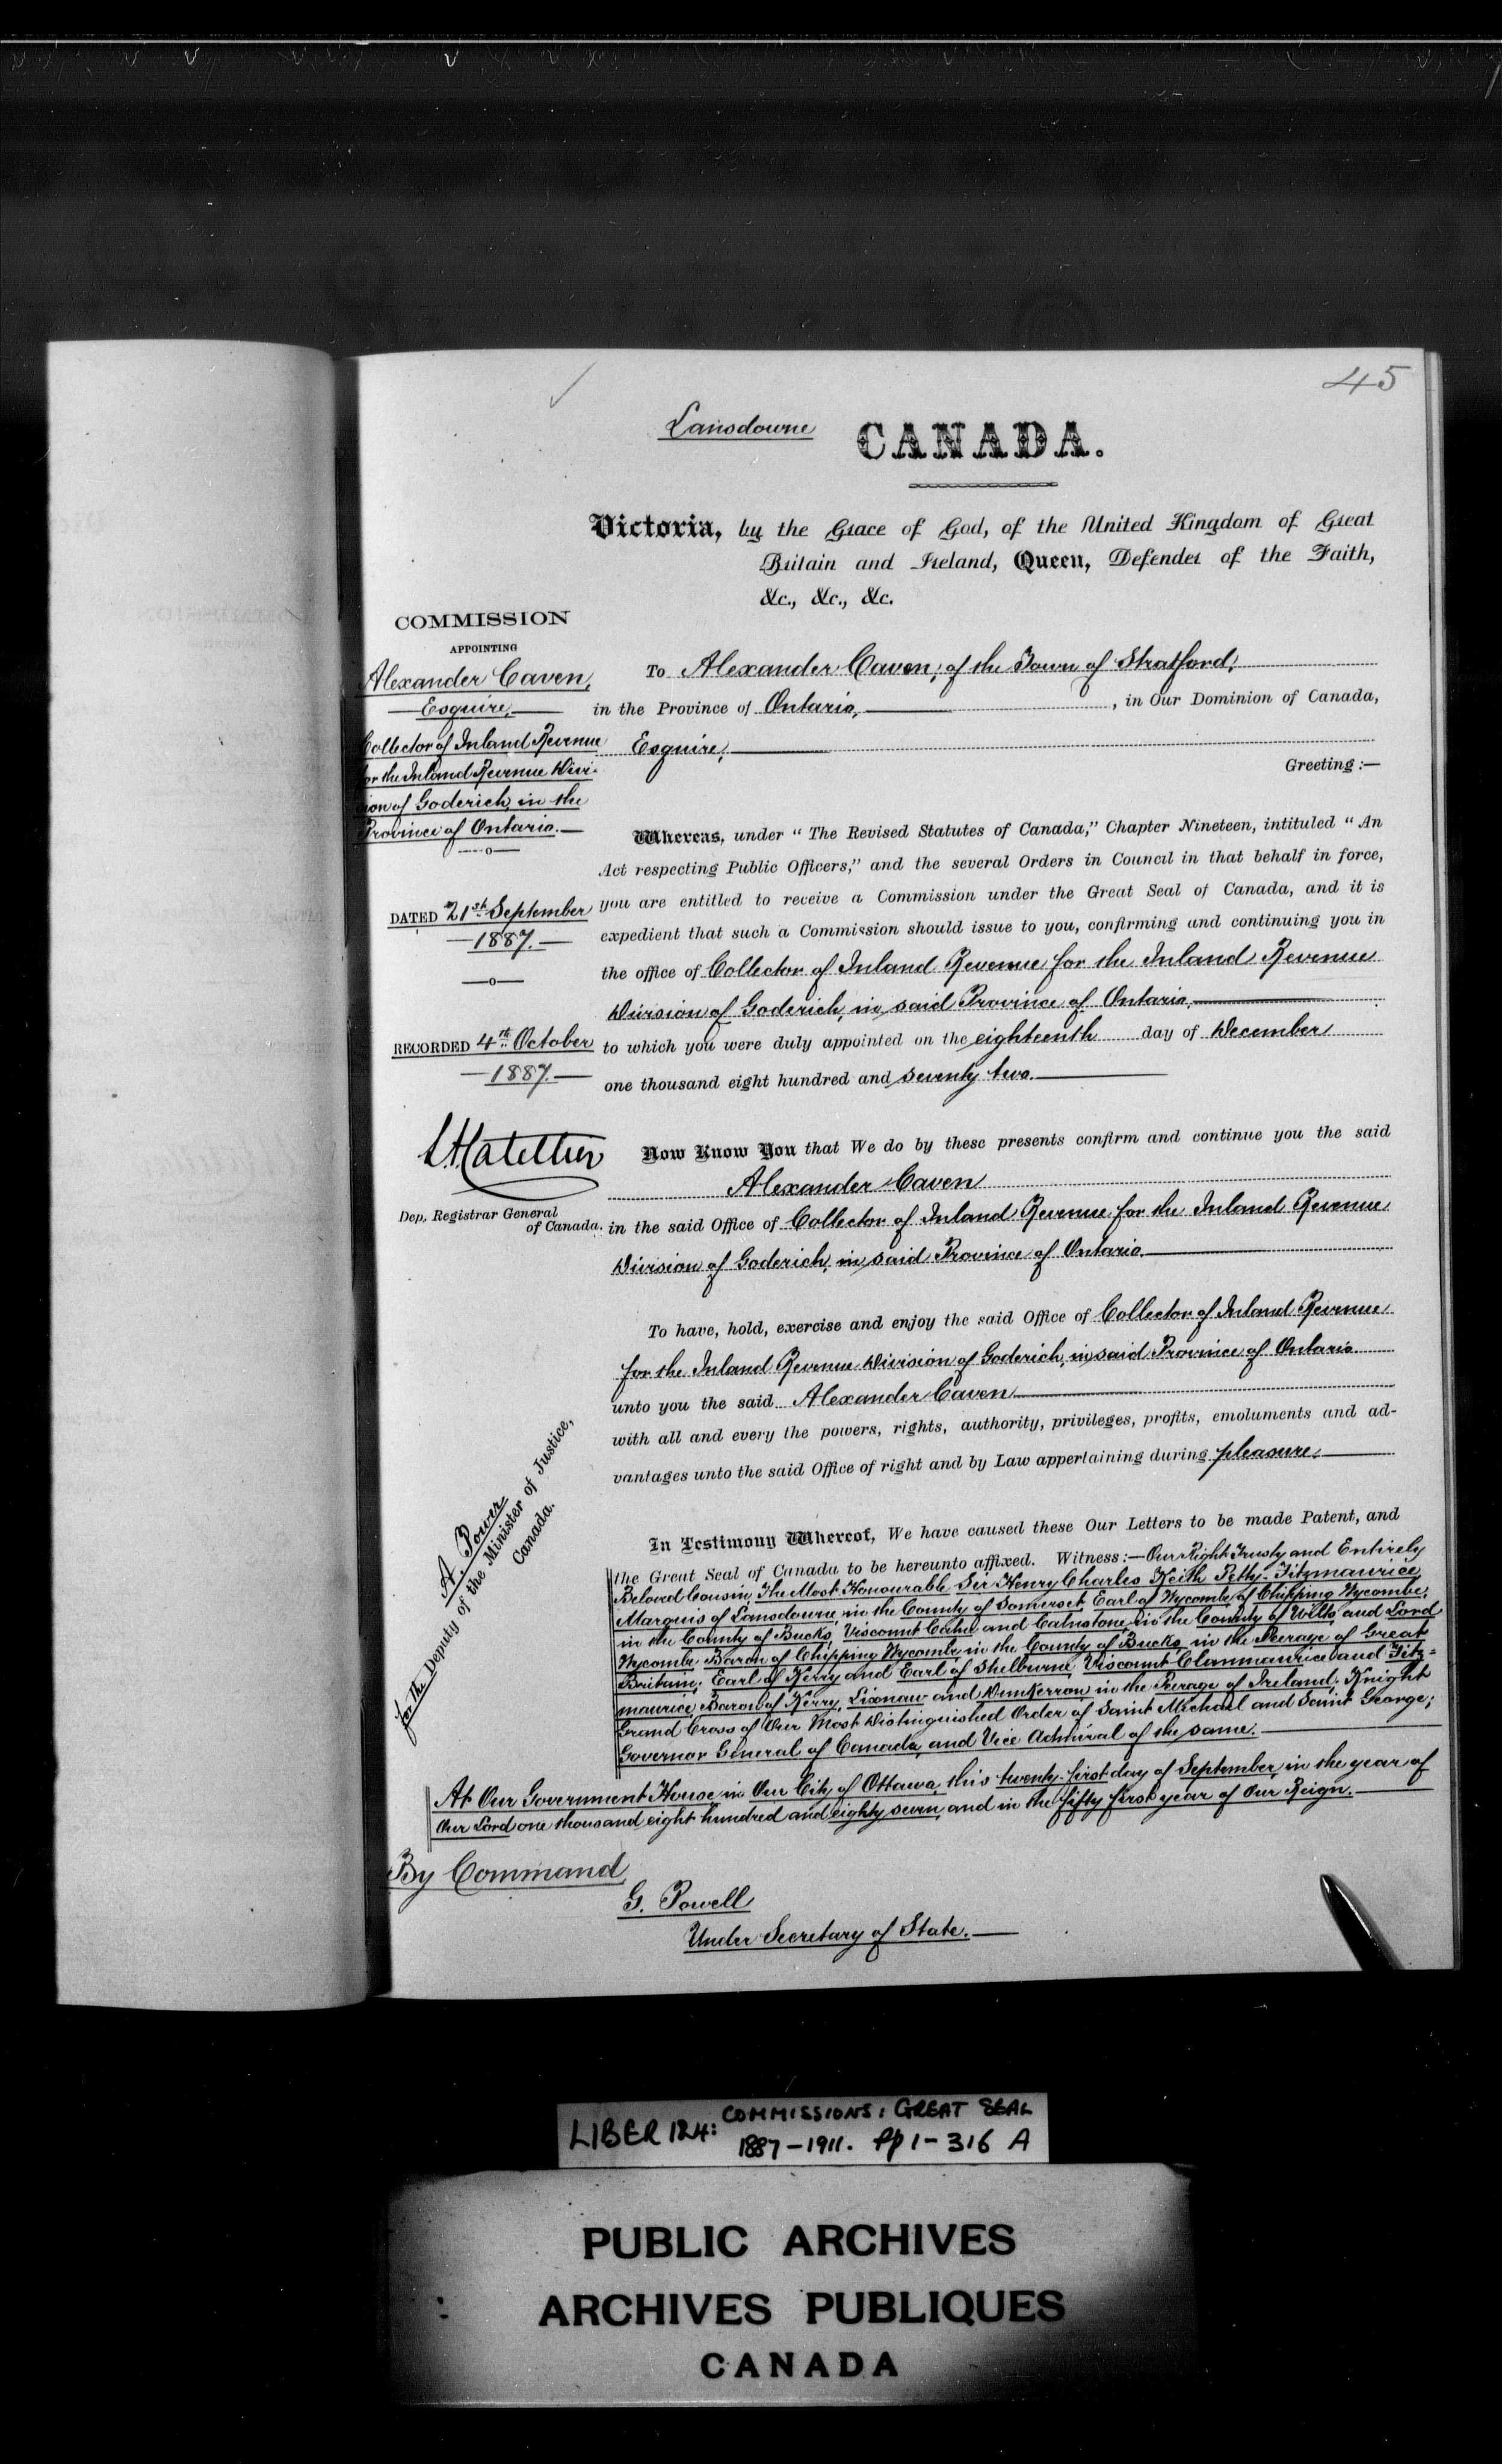 45
Lansdowne
CANADA.
Victoria, by the Grace of God, of the United Kingdom of Great
Britain and Ireland, Queen, Defender of the Faith,
&c., &c., &c.
COMMISSION
APPOINTING
Alexander Caven,
Esquire,
Collector of Inland Revenue
for the Inland Revenue Divi-
sion of Goderich, in the
Province of Ontario.
DATED 21st September
1887.
RECORDED 4th October
1887.
Dep. Registrar General
of Canada.
To Alexander Caven, of the Town of Stratford,
in the Province of Ontario, , in Our Dominion of Canada,
Esquire,
Greeting :—
Whereas, under “ The Revised Statutes of Canada,” Chapter Nineteen, intituled “ An
Act respecting Public Officers,” and the several Orders in Council in that behalf in force,
you are entitled to receive a Commission under the Great Seal of Canada, and it is
expedient that such a Commission should issue to you, confirming and continuing you in
the office of Collector of Inland Revenue for the Inland Revenue
Division of Goderich, in said Province of Ontario,
to which you were duly appointed on the eighteenth day of December
one thousand eight hundred and seventy two.
Now Know You that We do by these presents confirm and continue you the said
Alexander Caven
in the said Office of Collector of Inland Revenue for the Inland Revenue
Division of Goderich, in said Province of Ontario
To have, hold, exercise and enjoy the said Office of Collector of Inland Revenue
for the Inland Revenue Division of Goderich, in said Province of Ontario
unto you the said Alexander Caven
with all and every the powers, rights, authority, privileges, profits, emoluments and ad-
vantages unto the said Office of right and by Law appertaining during pleasure.
A. Power
for the Deputy of the Minister of Justice,
Canada.
In Testimony Whereof, We have caused these Our Letters to be made Patent, and
the Great Seal of Canada to be hereunto affixed. Witness :—Our Right Trusty and Entirely
Beloved Cousin, The Most Honourable Sir Henry Charles Keith Petty-Fitzmaurice,
Marquis of Lansdowne, in the County of Somerset, Earl of Wycombe, of Chipping Wycombe,
in the County of Bucks, Viscount Calne and Calnstone, in the County of Wilts, and Lord
Wycombe, Baron of Chipping Wycombe, in the County of Bucks, in the Peerage of Great
Britain; Earl of Kerry and Earl of Shelburne, Viscount Clanmaurice and Fitz-
maurice, Baron of Kerry, Lixnaw and Dunkerron in the Peerage of Ireland; Knight
Grand Cross of Our Most Distinguished Order of Saint Michael and Saint George;
Governor General of Canada, and Vice Admiral of the same.
At Our Government House, in Our City of Ottawa, this twenty-first day of September, in the year of
Our Lord one thousand eight hundred and eighty seven, and in the fifty first year of Our Reign.
By Command,
G. Powell
Under Secretary of State.
LIBER 124: COMMISSIONS: GREAT SEAL
1887-1911. pp 1-316 A
PUBLIC ARCHIVES
ARCHIVES PUBLIQUES
CANADA